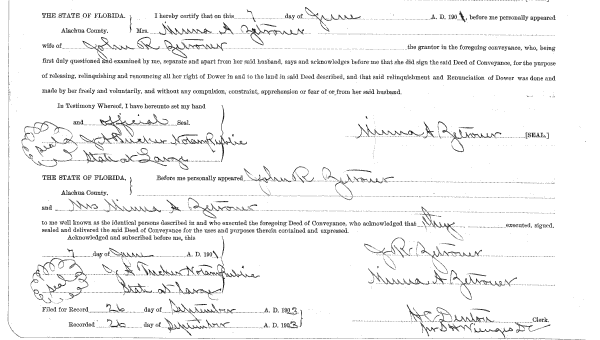 THE STATE OF FLORIDA. I hereby certify that on this 7 day of June A. D. 190 before me personally appeared
Alachua County. Mrs. Minna A Zetrouer
wife of John R Zetrouer the grantor in the foregoing conveyance, who, being
first duly questioned and examined by me, separate and apart from her said husband, says and acknowledges before me that she did sign the said Deed of Conveyance, for the purpose
of releasing, relinquishing and renouncing all her right of Dower in and to the land in said Deed described, and that said relinquishment and Renunciation of Dower was done and
made by her freely and voluntarily, and without any compulsion, constraint, apprehension or fear of or from her said husband.
In Testimony Whereof, I have hereunto set my hand
and official Seal.
seal J A Tucker Notary Public Minna A Zetrouer [SEAL]
State at Large
THE STATE OF FLORIDA. Before me personally appeared John R Zetrouer
Alachua County.
and Mrs Minna A Zetrouer
to me well known as the identical persons described in and who executed the foregoing Deed of Conveyance, who acknowledged that they executed, signed,
sealed and delivered the said Deed of Conveyance for the uses and purposes therein contained and expressed.
Acknowledged and subscribed before me, this
7 day of June A. D. 190 J R Zetrouer
seal J A Tucker Notary Public Minna A Zetrouer
State at Large
Filed for Record 26 day of September A. D. 1903 H C Denton Clerk.
Recorded 26 day of September 1903